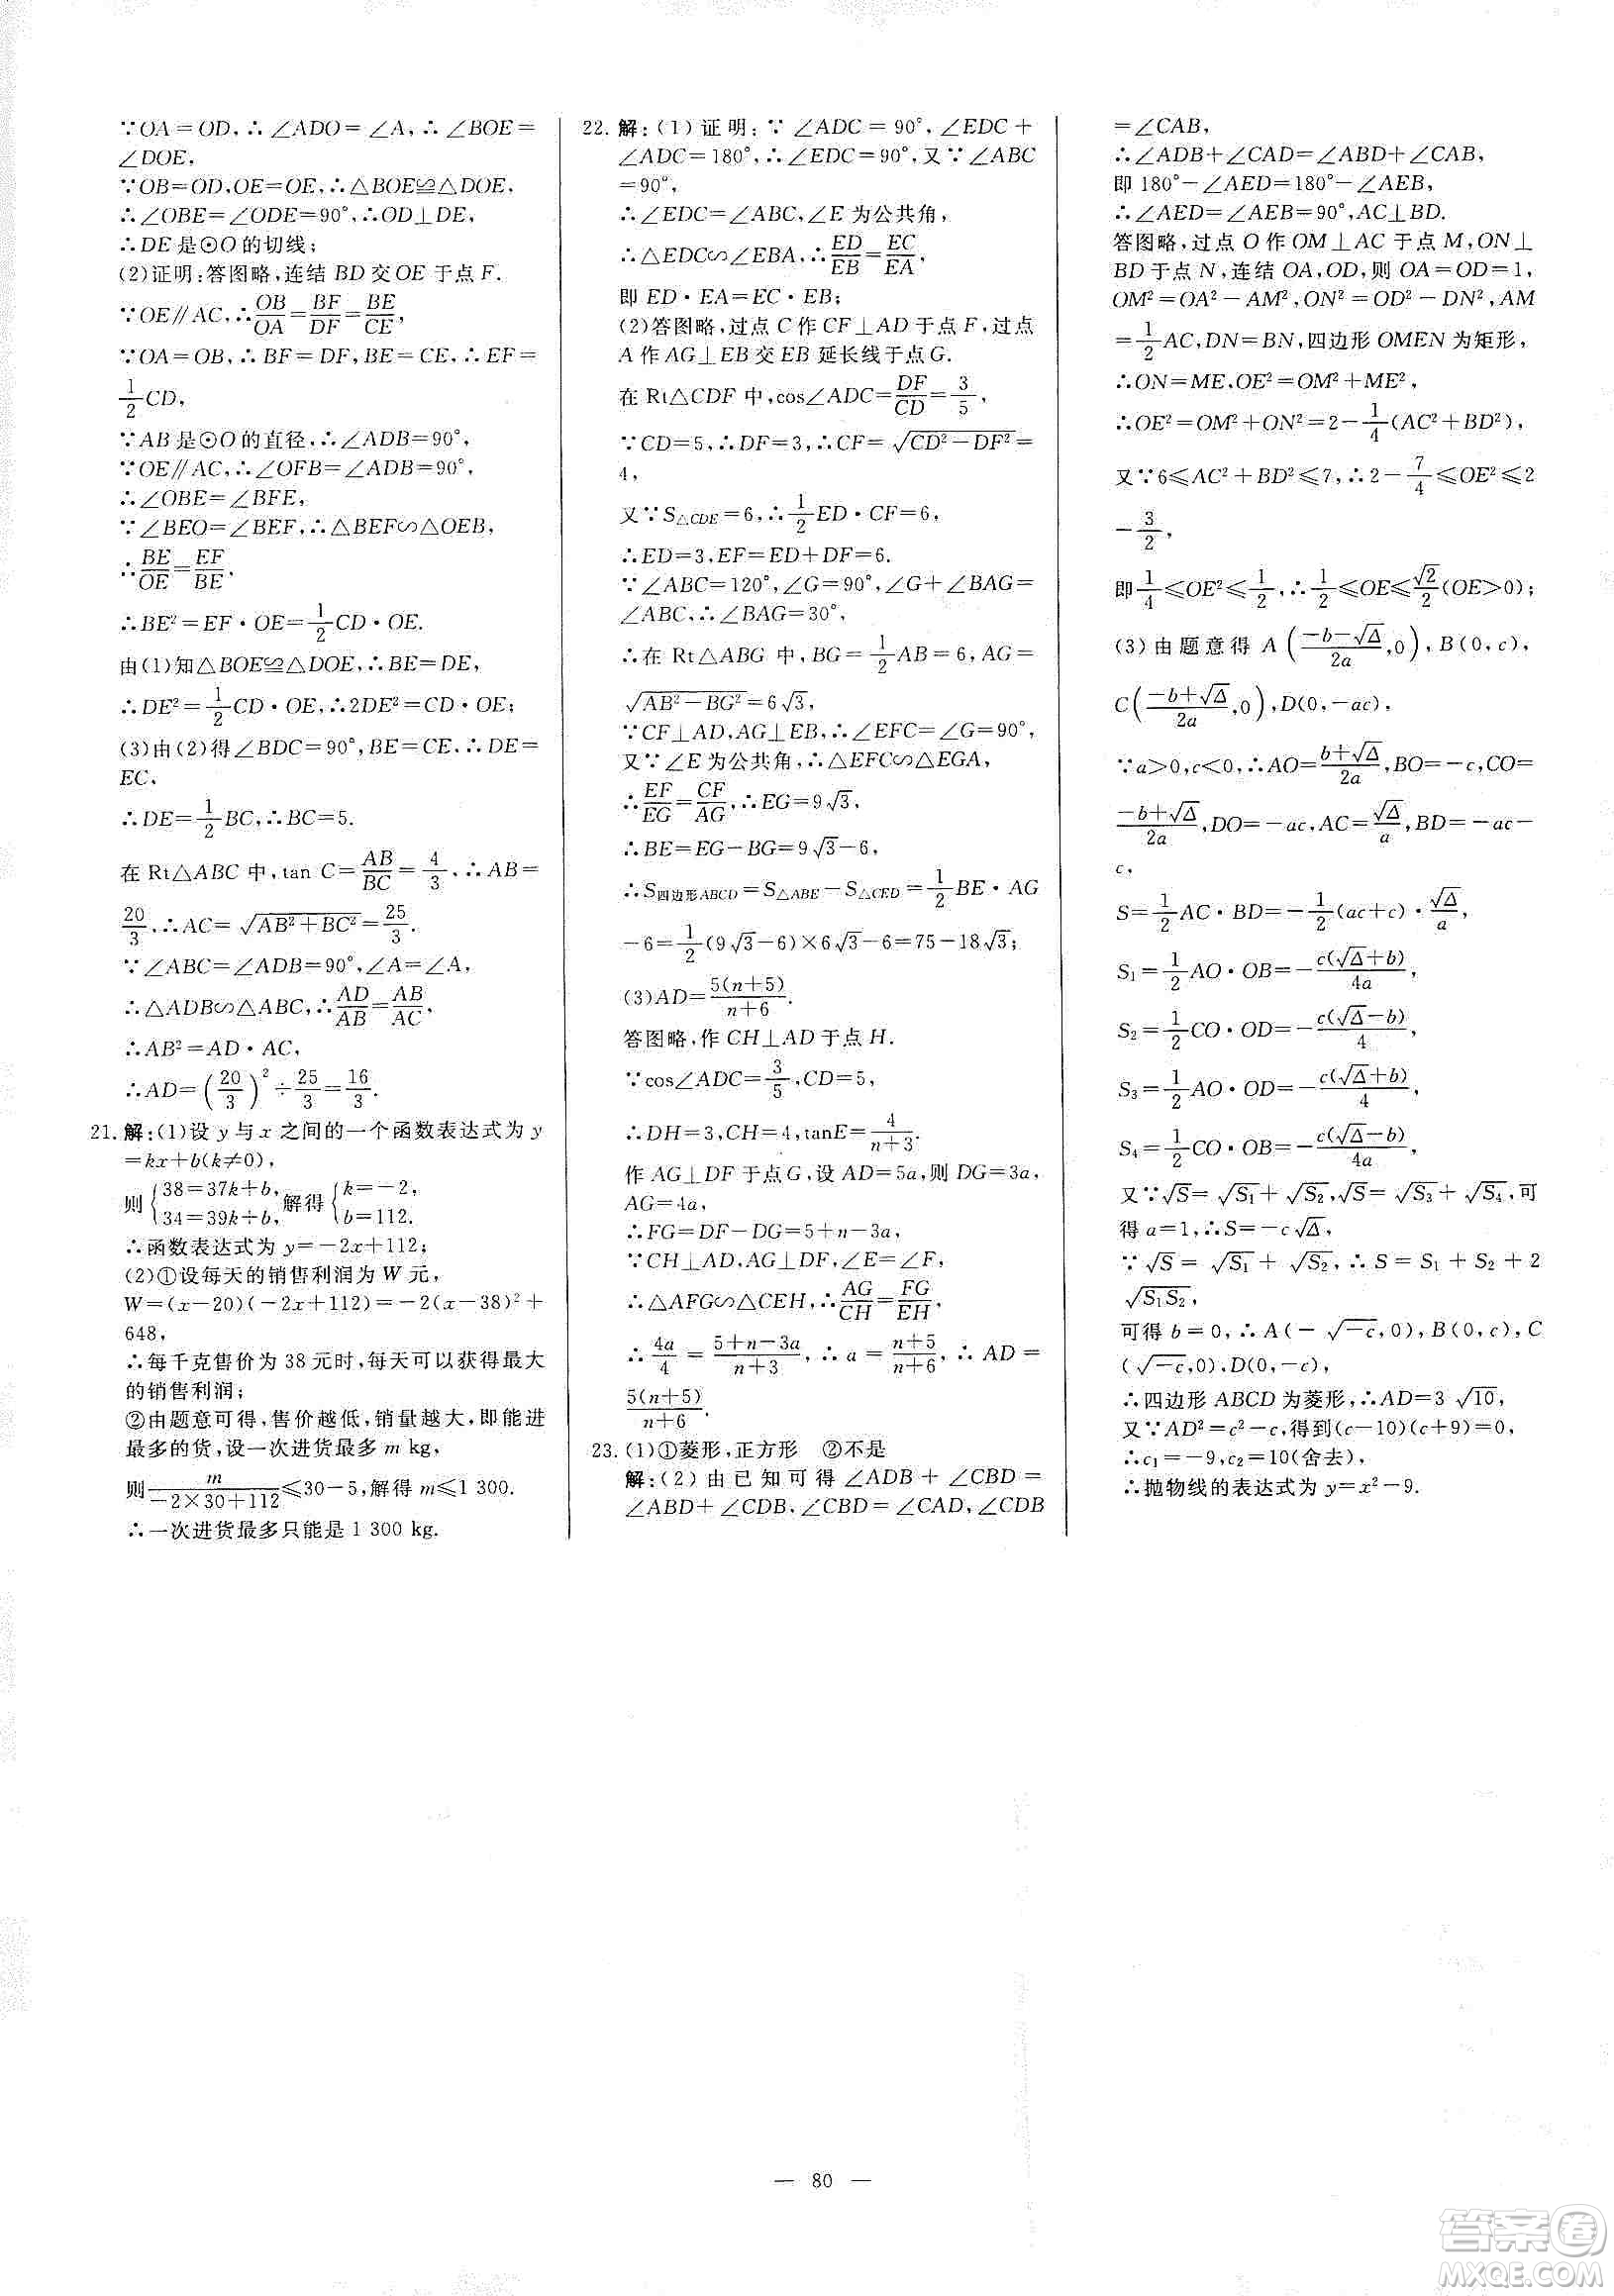 ∵OA=OD,∴∠ADO=∠A,∴∠BOE=
∠DOE,
∵OB=OD,OE=OE,∴△BOE≌△DOE,
∴∠OBE=∠ODE=90°,∴OD⊥DE,
∴DE是⊙O的切线;
(2)证明:答图略,连结BD交OE于点F.
∵OE∥AC,∴OB/OA=BF/DF=BE/CE,
∵OA=OB,∴BF=DF,BE=CE,∴EF=
1/2CD,
∵AB是⊙O的直径,∴∠ADB=90°,
∵OE∥AC,∴∠OFB=∠ADB=90°,
∴∠OBE=∠BFE,
∵∠BEO=∠BEF,∴△BEF∽△OEB,
∴BE/OE=EF/BE,
∴BE²=EF·OE=1/2CD·OE.
由(1)知△BOE≌△DOE,∴BE=DE,
∴DE²=1/2CD·OE,∴2DE²=CD·OE;
(3)由(2)得∠BDC=90°,BE=CE,∴DE=
EC,
∴DE=1/2BC,∴BC=5.
在Rt△ABC中,tan C=AB/BC=4/3,∴AB=
20/3,∴AC=√(AB²+BC²)=25/3.
∵∠ABC=∠ADB=90°,∠A=∠A,
∴△ADB∽△ABC,∴AD/AB=AB/AC,
∴AB²=AD·AC,
∴AD=(20/3)²÷25/3=16/3.
21.解:(1)设y与x之间的一个函数表达式为y
=kx+b(k≠0),
则{38=37k+b, 34=39k+b, 解得{k=-2, b=112.
∴函数表达式为y=-2x+112;
(2)①设每天的销售利润为W元,
W=(x-20)(-2x+112)=-2(x-38)²+
648,
∴每千克售价为38元时,每天可以获得最大
的销售利润;
②由题意可得,售价越低,销量越大,即能进
最多的货,设一次进货最多m kg,
则m/(-2×30+112)≤30-5,解得m≤1 300.
∴一次进货最多只能是1 300 kg.
22.解:(1)证明:∵∠ADC=90°,∠EDC+
∠ADC=180°,∴∠EDC=90°,又∵∠ABC
=90°,
∴∠EDC=∠ABC,∠E为公共角,
∴△EDC∽∠EBA,∴ED/EB=EC/EA,
即ED·EA=EC·EB;
(2)答图略,过点C作CF⊥AD于点F,过点
A作AG⊥EB交EB延长线于点G.
在Rt△CDF中,cos∠ADC=DF/CD=3/5,
∵CD=5,∴DF=3,∴CF=√(CD²-DF²)=
4,
又∵S△CDE=6,∴1/2ED·CF=6,
∴ED=3,EF=ED+DF=6.
∵∠ABC=120°,∠G=90°,∠G+∠BAG=
∠ABC,∴∠BAG=30°,
∴在Rt△ABG中,BG=1/2AB=6,AG=
√(AB²-BG²)=6√3,
∵CF⊥AD,AG⊥EB,∴∠EFC=∠G=90°,
又∵∠E为公共角,∴△EFC∽△EGA,
∴EF/EG=CF/AG,∴EG=9√3,
∴BE=EG-BG=9√3-6,
∴S四边形ABCD=S△ABE-S△CED=1/2BE·AG
-6=1/2(9√3-6)×6√3-6=75-18√3;
(3)AD=5(n+5)/(n+6).
答图略,作CH⊥AD于点H.
∵cos∠ADC=3/5,CD=5,
∴DH=3,CH=4,tanE=4/(n+3).
作AG⊥DF于点G,设AD=5a,则DG=3a,
AG=4a,
∴FG=DF-DG=5+n-3a,
∵CH⊥AD,AG⊥DF,∠E=∠F,
∴△AFG∽△CEH,∴AG/CH=FG/EH,
∴4a/4=(5+n-3a)/(n+3),∴a=(n+5)/(n+6),∴AD=
5(n+5)/(n+6).
23.(1)①菱形,正方形 ②不是
解:(2)由已知可得∠ADB+∠CBD=
∠ABD+∠CDB,∠CBD=∠CAD,∠CDB
=∠CAB,
∴∠ADB+∠CAD=∠ABD+∠CAB,
即180°-∠AED=180°-∠AEB,
∴∠AED=∠AEB=90°,AC⊥BD.
答图略,过点O作OM⊥AC于点M,ON⊥
BD于点N,连结OA,OD,则OA=OD=1,
OM²=OA²-AM²,ON²=OD²-DN²,AM
=1/2AC,DN=BN,四边形OMEN为矩形,
∴ON=ME,OE²=OM²+ME²,
∴OE²=OM²+ON²=2-1/4(AC²+BD²),
又∵6≤AC²+BD²≤7,∴2-7/4≤OE²≤2
-3/2,
即1/4≤OE²≤1/2,∴1/2≤OE≤√2/2(OE>0);
(3)由题意得A((-b-√Δ)/2a,0),B(0,c),
C((-b+√Δ)/2a,0),D(0,-ac),
∵a>0,c<0,∴AO=(b+√Δ)/2a,BO=-c,CO=
(-b+√Δ)/2a,DO=-ac,AC=√Δ/a,BD=-ac-
c,
S=1/2AC·BD=-1/2(ac+c)·√Δ/a,
S₁=1/2AO·OB=-c(√Δ+b)/4a,
S₂=1/2CO·OD=-c(√Δ-b)/4,
S₃=1/2AO·OD=-c(√Δ+b)/4
S₄=1/2CO·OB=-c(√Δ-b)/4a,
又∵√S=√S₁+√S₂,√S=√S₃+√S₄,可
得a=1,∴S=-c√Δ,
∵√S=√S₁+√S₂,∴S=S₁+S₂+2
√(S₁S₂),
可得b=0,∴A(-√(-c),0),B(0,c),C
(√(-c),0),D(0,-c),
∴四边形ABCD为菱形,∴AD=3√10,
又∵AD²=c²-c,得到(c-10)(c+9)=0,
∴c₁=-9,c₂=10(舍去),
∴抛物线的表达式为y=x²-9.
— 80 —
答案圈
MXQE.COM